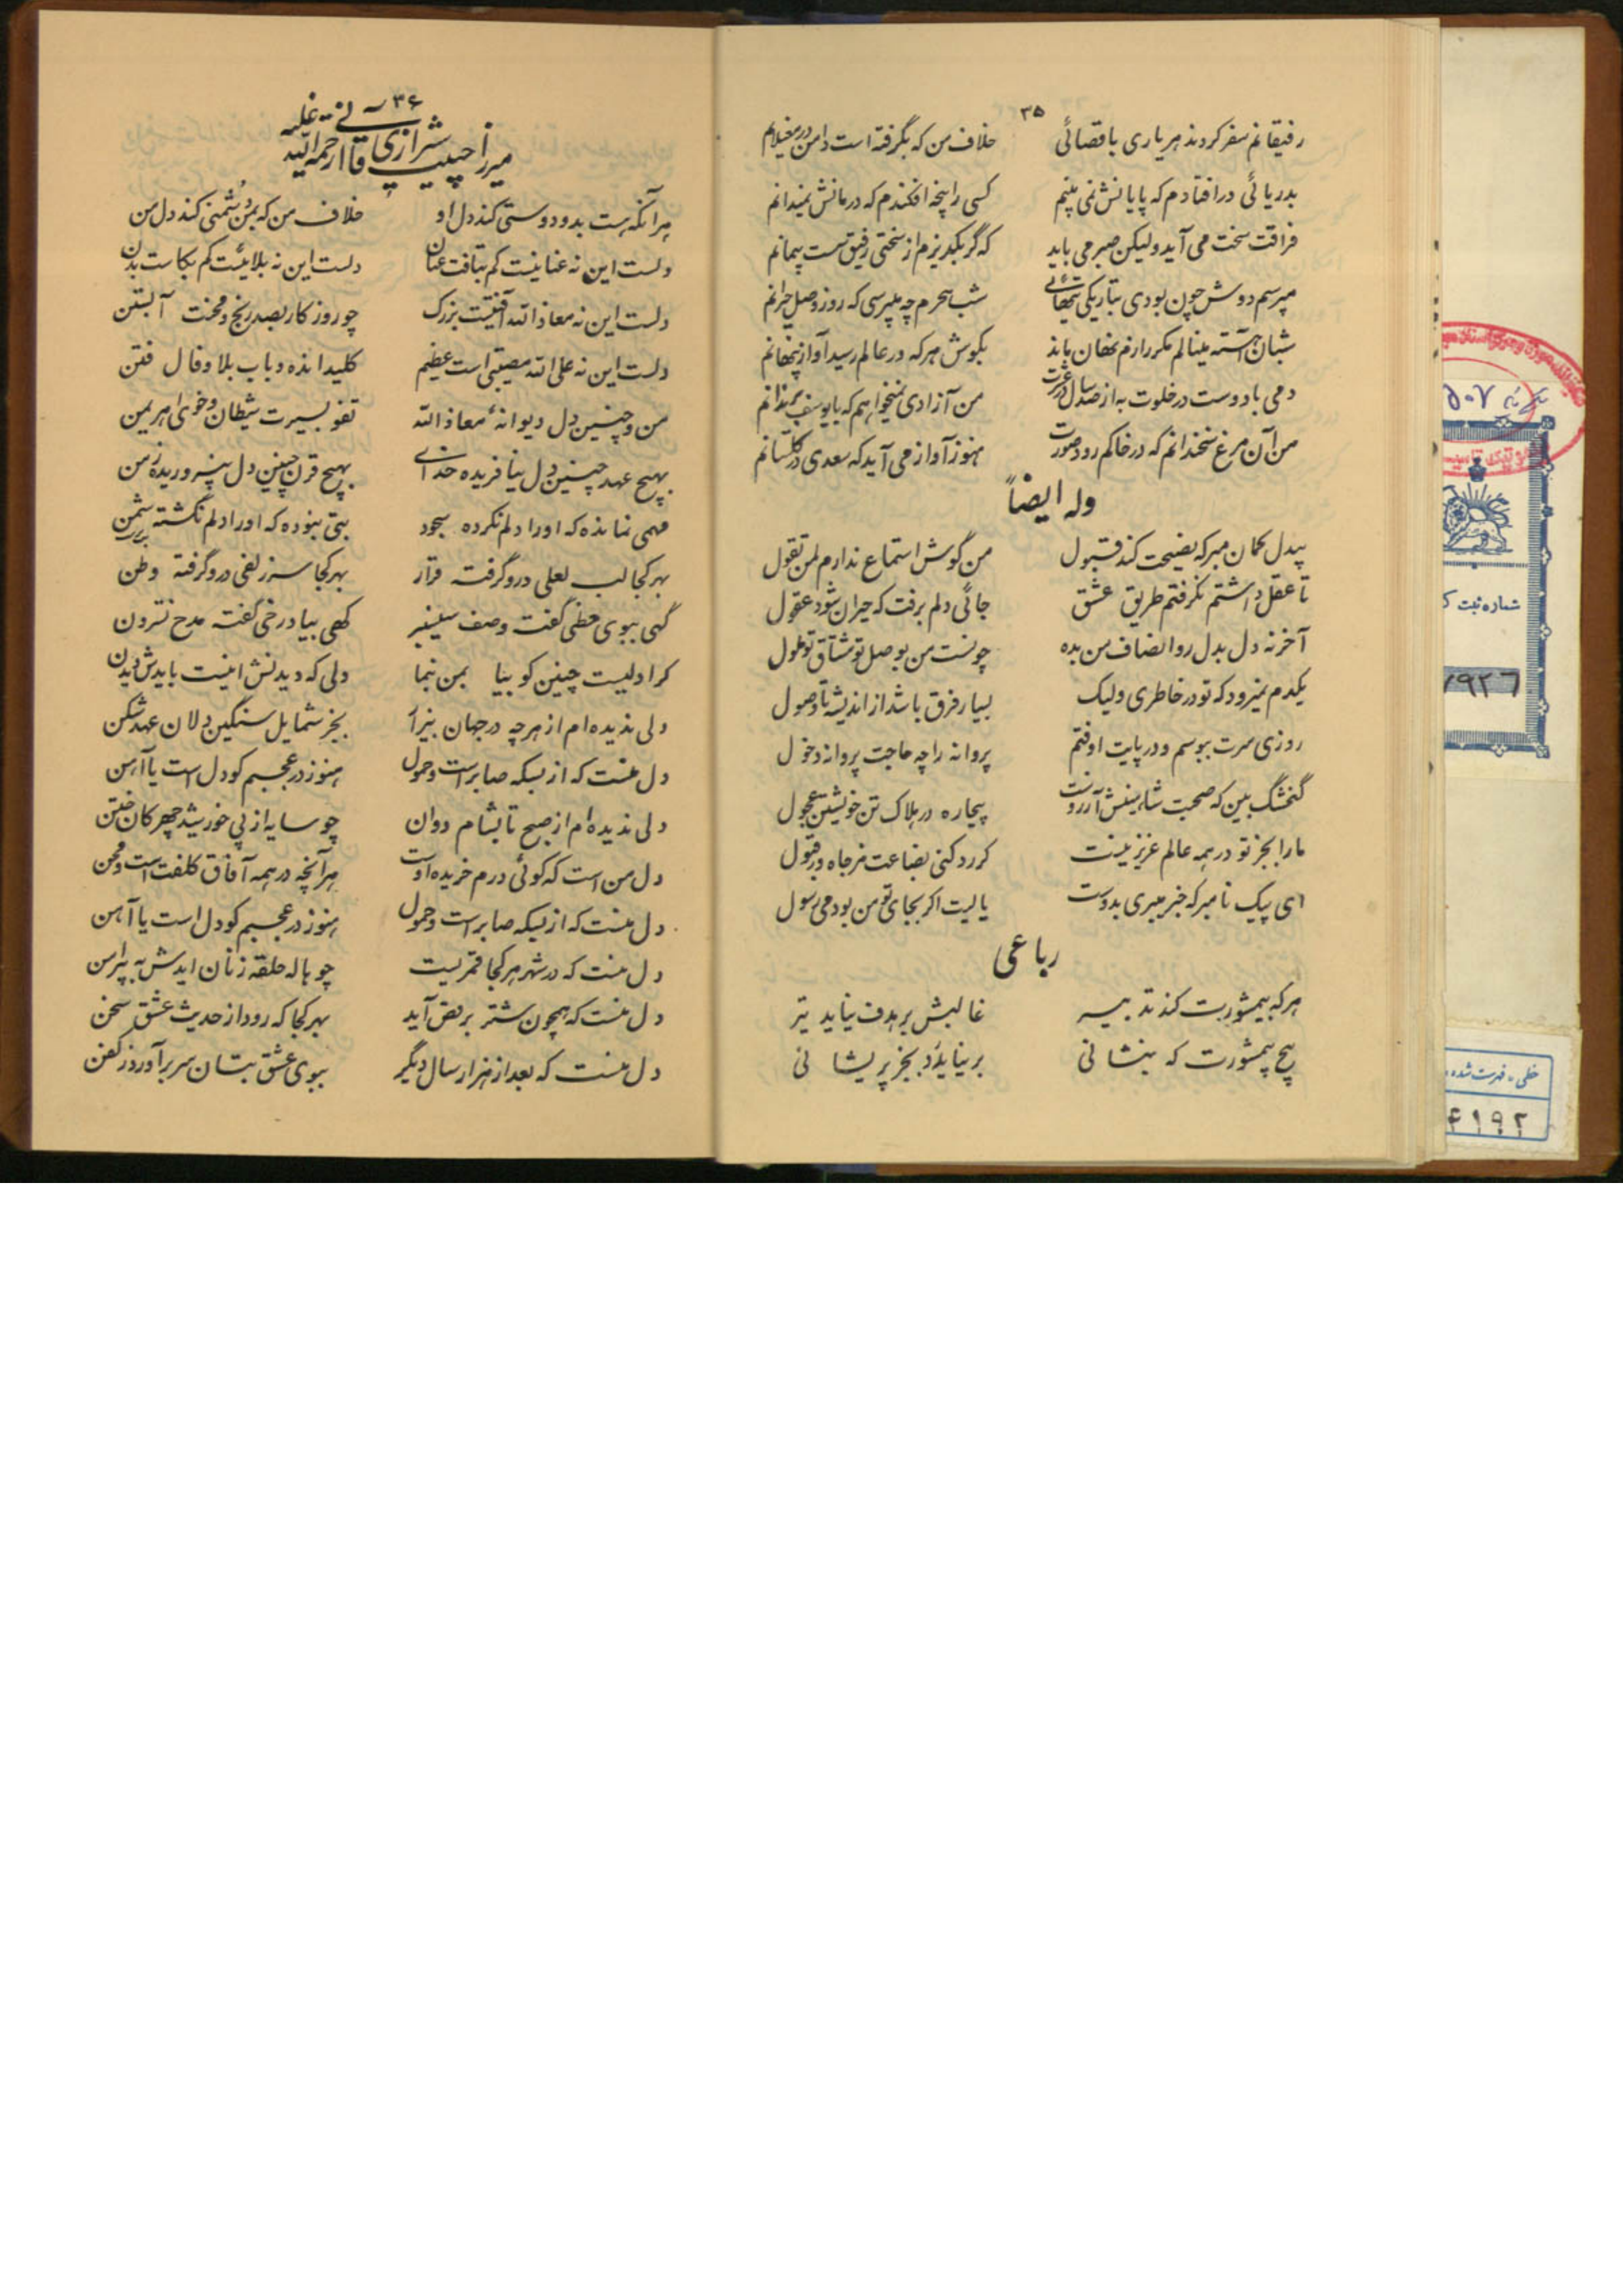 ۳۵
رفیقانم سفر کردند هر یاری باقصائی خلاف من که بگرفته است دامن در مغیلانم
بدریائی درافتادم که پایانش نمی بینم کسی را پنجه افکندم که درمانش نمیدانم
فراقت سخت می آید ولیکن صبر می باید که گر بگریزم از سختی رفیق سست پیمانم
مپرسم دوش چون بودی بتاریکی و تنهائی شب هجرم چه میپرسی که روز وصل حیرانم
شبان آهسته مینالم مگر رازم نهان ماند بگوش هر که در عالم رسید آواز پنهانم
دمی با دوست در خلوت به از صد سال در عشرت من آزادی نمیخواهم که با یوسف بزندانم
من آن مرغ سخندانم که در خاکم رود صورت هنوز آواز می آید که سعدی در گلستانم
وله ایضاً
بیدل گمان مبر که نصیحت کند قبول من گوش استماع ندارم لمن تقول
تا عقل داشتم نگرفتم طریق عشق جائی دلم برفت که حیران شود عقول
آخر نه دل بدل رود انصاف من بده چونست من بوصل تو مشتاق و تو ملول
یکدم نمیرود که تو در خاطری ولیک بسیار فرق باشد از اندیشه تا وصول
روزی سرت ببوسم و در پایت اوفتم پروانه را چه حاجت پروانه دخول
گنجشگ بین که صحبت شاهینش آرزوست بیچاره در هلاک تن خویشتن عجول
ما را بجز تو در همه عالم عزیز نیست گر رد کنی بضاعت مزجاه ور قبول
ای پیک نامبر که خبر میبری بدوست یا لیت اگر بجای تو من بودمی رسول
رباعی
هر که بیمشورت کند تدبیر غالبش بر هدف نیاید تیر
بیخ بیمشورت که بنشانی بر نیاید بجز پریشانی
۳۶
میرزا حبیب شیرازی قاآنی رحمه الله علیه
هر آنکه هست بدو دوستی کند دل او خلاف من که بمن دشمنی کند دل من
دلست این نه عنانیست کم بتافت عنان دلست این نه بلائیست کم بکاست بدن
دلست این نه معاذالله آفتیست بزرگ چو روزگار بصد رنج و محنت آبستن
دلست این نه علی الله مصیبتی است عظیم کلید انده و باب بلا و فال فتن
من و چنین دل دیوانهٔ معاذالله تفو بسیرت شیطان و خوی اهریمن
بهیچ عهد چنین دل نیافریده خدای بهیچ قرن چنین دل نپروریده زمن
مهی نمانده که او را دلم نکرده سجود بتی نبوده که او را دلم نگشته شمن
بهر کجا لب لعلی درو گرفته قرار بهر کجا سر زلفی درو گرفته وطن
گهی ببوی خطی گفت وصف سیسنبر گهی بیاد رخی گفته مدح نسترون
کرا دلیست چنین کو بیا بمن بنما دلی که دیدنش اینست بایدش دیدن
دلی ندیده ام از هر چه در جهان بیزار بجز شمایل سنگین دلان عهد شکن
دل منست که از بسکه صابر است و حمول هنوز در عجبم کو دل است یا آهن
دلی ندیده ام از صبح تا بشام دوان چو سایه از پی خورشید چهرکان ختن
دل من است که گوئی درم خریده اوست هر آنچه در همه آفاق کلفت است و محن
دل منست که از بسکه صابر است و حمول هنوز در عجبم کو دل است یا آهن
دل منست که در شهر هر کجا قمریست چو هاله حلقه زنان آیدش به پیرامن
دل منست که همچون شتر برقص آید بهر کجا که رود از حدیث عشق سخن
دل منست که بعد از هزار سال دیگر ببوی عشق بتان سر برآورد ز کفن
۵۰۷
شماره ثبت ک
۷۹۲۶
خطی - فهرست شده
۴۱۹۲